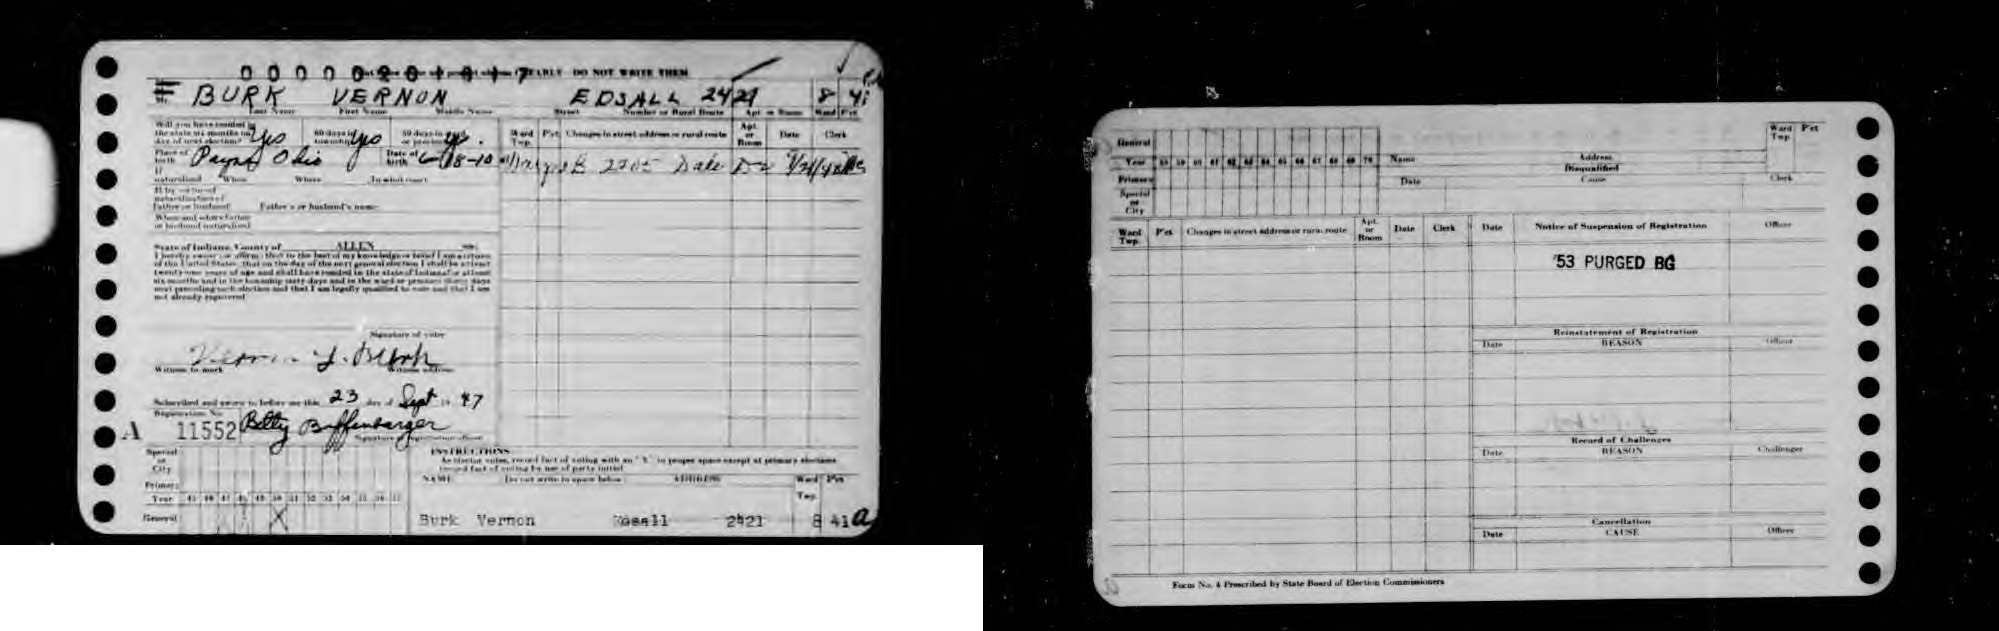 0 0 0 0 0 2 0 1 8 1 7 CLEARLY DO NOT WRITE THEM
Mr. BURK VERNON EDSALL 2421 8 41
Last Name First Name Middle Name Street Number or Rural Route Apt. or Room Ward Pct.
Will you have resided in
the state six months on Yes 60 days in township Yes 30 days in ward or precinct yes.
day of next election?
Place of birth Payne Ohio Date of birth 6-18-10
If naturalized When Where In what court
If by virtue of
naturalization of
Father or husband Father's or husband's name
When and where father
or husband naturalized
State of Indiana, County of ALLEN ss:
I hereby swear or affirm that to the best of my knowledge or belief I am a citizen
of the United States, that on the day of the next general election I shall be at least
twenty-one years of age and shall have resided in the state of Indiana for at least
six months and in the township sixty days and in the ward or precinct thirty days
next preceding such election and that I am legally qualified to vote and that I am
not already registered
Signature of voter
Vernon J. Burk
Witness to mark Witness address
Subscribed and sworn to before me this 23 day of Sept 19 47
Registration No.
A 11552 Betty Biffenbarger
Signature of registration officer
Ward Twp. Pct. Changes in street address or rural route Apt. or Room Date Clerk
Wayne B 2205 Dale D-2
Special or City
Primary
Year 45 46 47 48 49 50 51 52 53 54 55 56 57
General X
INSTRUCTIONS
As elector votes, record fact of voting with an "X" in proper space except at primary elections
record fact of voting by use of party initial
NAME Do not write in space below ADDRESS Ward Twp. Pct
Burk Vernon Edsall 2421 8 41 a
General
Year 58 59 60 61 62 63 64 65 66 67 68 69 70
Primary
Special or City
Name Address Ward Twp. P'ct
Disqualified
Date Cause Clerk
Ward Twp. P'ct Changes in street address or rural route Apt. or Room Date Clerk
Date Notice of Suspension of Registration Officer
'53 PURGED BG
Reinstatement of Registration
Date REASON Officer
Record of Challenges
Date REASON Challenger
Cancellation
Date CAUSE Officer
Form No. 4 Prescribed by State Board of Election Commissioners